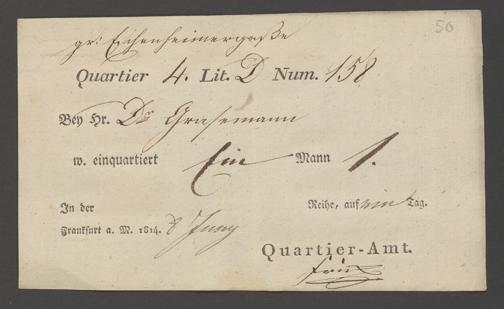 50
gr: Eschenheimergaße
Quartier 4. Lit. D Num. 158
Bey Hr. Dr Grasemann
w. einquartiert Ein Mann 1.
In der Reihe, auf ein Tag.
Frankfurt a. M. 1814. 8 Juny
Quartier-Amt.